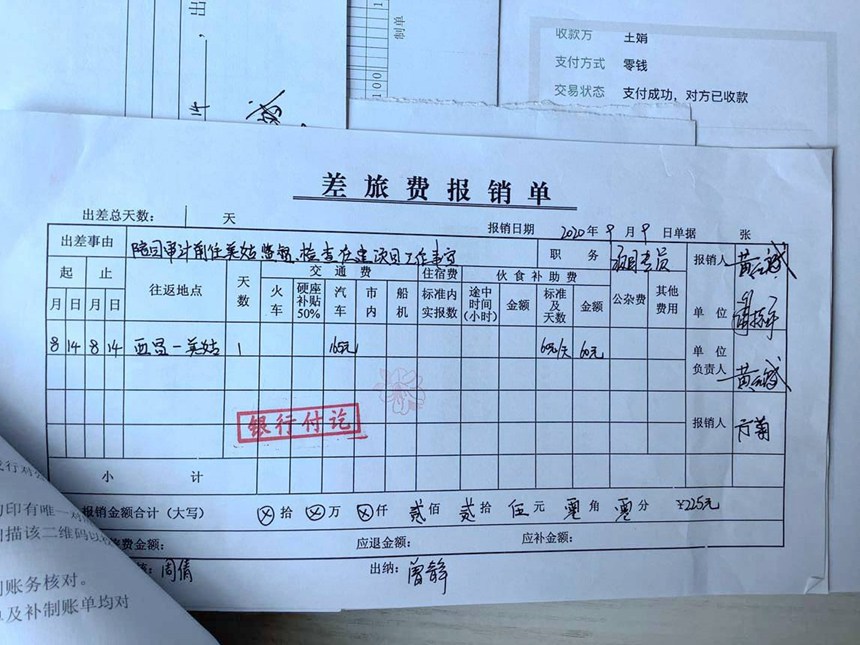 收款方 王娟
支付方式 零钱
交易状态 支付成功，对方已收款
制单
100
出
差旅费报销单
出差总天数： 1 天
报销日期 2020年9月9日 单据 张
出差事由 陪同审计前往美姑监督、检查在建项目工作事宜 职务 项目专员 报销人
起 止 往返地点 天数 交通费 住宿费 伙食补助费 公杂费 其他费用
月 日 月 日 火车 硬座补贴50% 汽车 市内 船机 标准内实报数 途中时间(小时) 金额 标准及天数 金额 单位
8 14 8 14 西昌—美姑 1 165元 60元/天 60元 单位负责人
银行付讫
报销人
小计
报销金额合计（大写） ⊗拾⊗万⊗仟贰佰贰拾伍元零角零分 ¥225元
费金额： 应退金额： 应补金额：
周倩 出纳： 曾静
印有唯一
描该二维的以
账务核对。
及补制账单均对